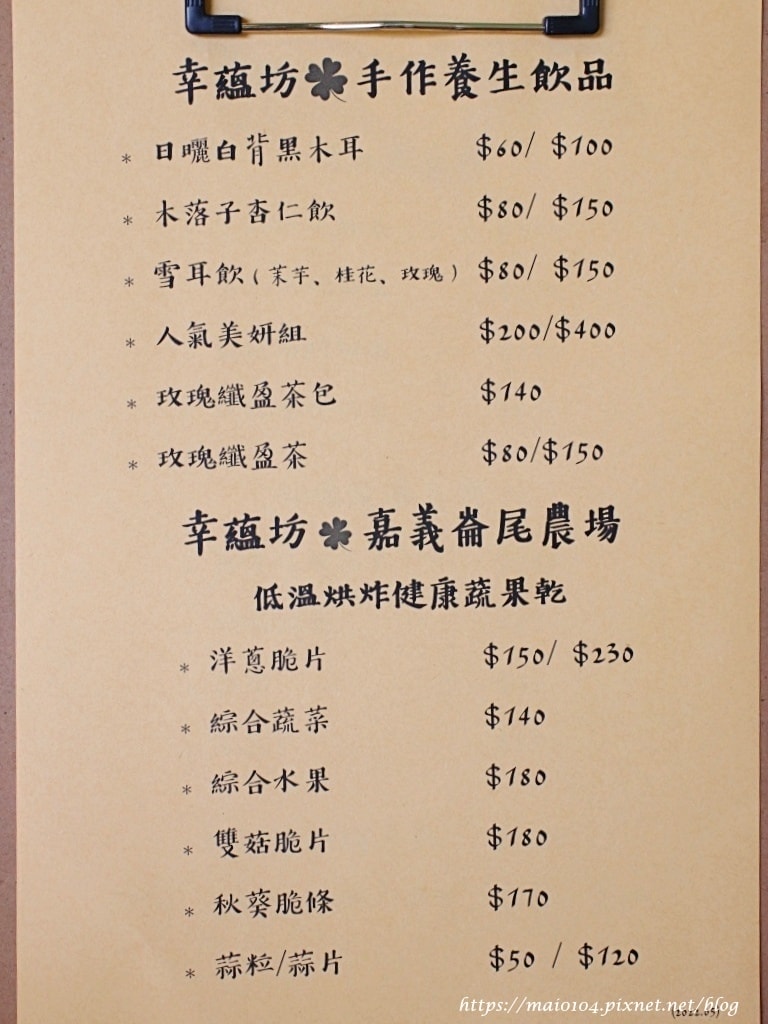 幸蘊坊 手作養生飲品
* 日曬白背黑木耳 $60/ $100
* 木落子杏仁飲 $80/ $150
* 雪耳飲(茉芋、桂花、玫瑰) $80/ $150
* 人氣美妍組 $200/$400
* 玫瑰纖盈茶包 $140
* 玫瑰纖盈茶 $80/$150
幸蘊坊 嘉義崙尾農場
低溫烘炸健康蔬果乾
* 洋蔥脆片 $150/ $230
* 綜合蔬菜 $140
* 綜合水果 $180
* 雙菇脆片 $180
* 秋葵脆條 $170
* 蒜粒/蒜片 $50 / $120
https://maio104.pixnet.net/blog
(2022.05)